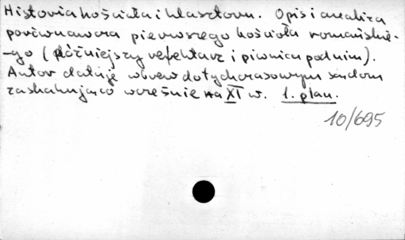 Historia kościoła i klasztoru. Opis i analiza
porównawcza pierwszego kościoła romańskie-
-go (późniejszy refektarz i piwnica pod nim).
Autor datuje wbrew dotychczasowym sądom
zaskakująco wcześnie na XI w. 1. plan.
10/695